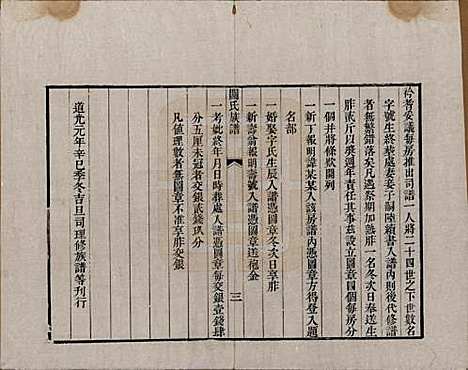 伶者妥議每房推出司譜一人將二十四世之下世數名
字號生終葬處妻妾子嗣陸續書入譜內則後代修譜
者無繁錯落矣凡遇祭期加熟胙一名冬次日奉送生
胙貳斤以獎週年責任其事兹設立圖章四個每房分
一個并將條欵開列
一新丁報明諱某某入該房譜內憑圖章方得登入題
名部
一婚娶字氏生辰入譜憑圖章冬次日享胙
一新壽翁報明壽號入譜憑圖章送砲金
關氏族譜
三
一考妣終年月日時葬處入譜憑圖章每交銀壹錢肆
分五厘未冠者交銀貳錢玖分
凡值理數者無圖章不准享胙交銀
道光元年辛巳季冬吉旦司理修族譜等刊行